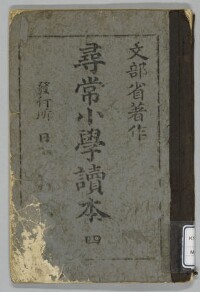 文部省著作
尋常小學讀本 四
發行所 日